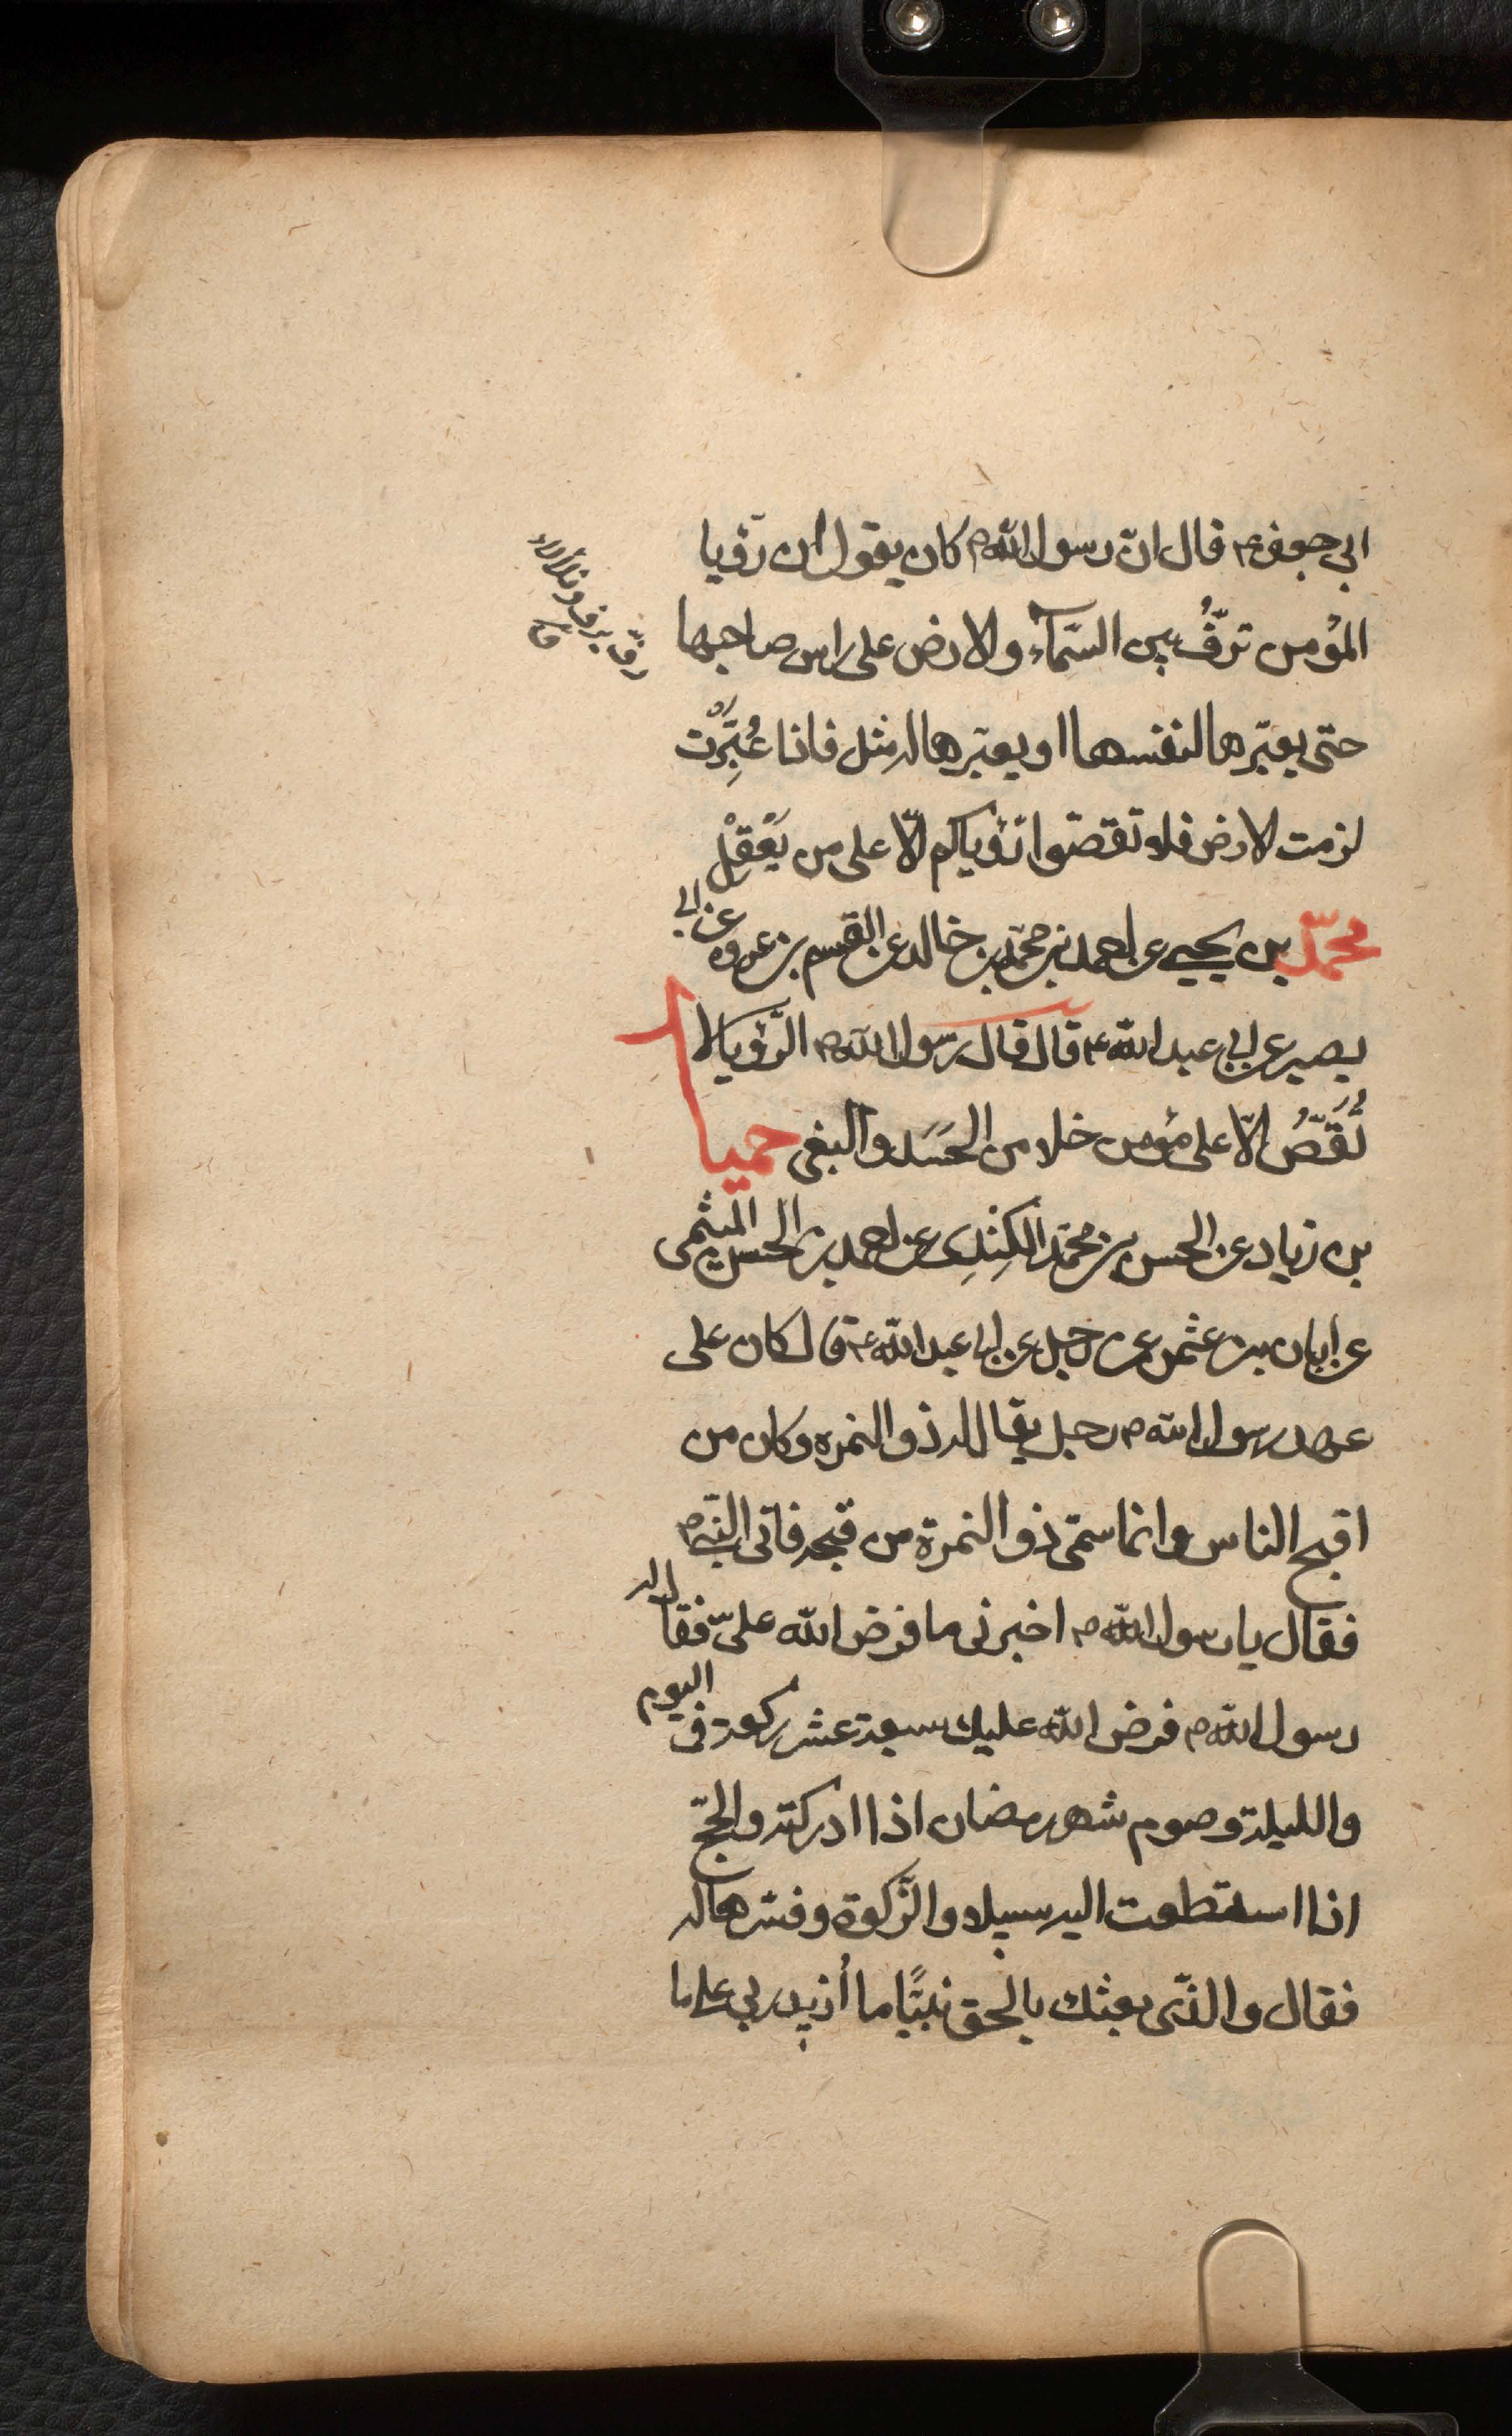 ابى جعفر ع قال انّ رسول الله ص كان يقول ان رؤيا
المؤمن ترفُّ بين السّمآء والارض على راس صاحبها
حتى يعبّرها لنفسها او يعبّرها له مثل فاذا عُبِّرَت
لزمت الارض فلا تقصّوا رؤياكم الّا على من يَعْقِل
محمّد بن يحيى عن احمد بن محمّد بن خالد عن القسم بن عروه عن ابى
بصير عن ابى عبد الله ع قال قال رسول الله ص الرّؤيا لا
تُقَصُّ الّا على مؤمن خلا من الحَسَد والبغى حميد
بن زياد عن الحسن بن محمّد الكِنْدِى عن احمد بن الحسن الميثمى
عن ابان بن عثمن عن رجل عن ابى عبد الله ع قال كان على
عهد رسول الله ص رجل يقال له ذو النمره وكان من
اقبح الناس وانما سمّى ذو النمرة من قبحه فاتى النّبى ص
فقال يا رسول الله ص اخبرنى ما فرض الله علىّ فقال له
رسول الله ص فرض الله عليك سبعة عشر ركعة فى اليوم
والليلة وصوم شهر رمضان اذا ادركته والحجّ
اذا استطعت اليه سبيلا والزّكوة وفسّرها له
فقال والذّى بعثك بالحق نبيًّا ما أزيد ربى على ما
رفّ يرف وتلألأ
ق